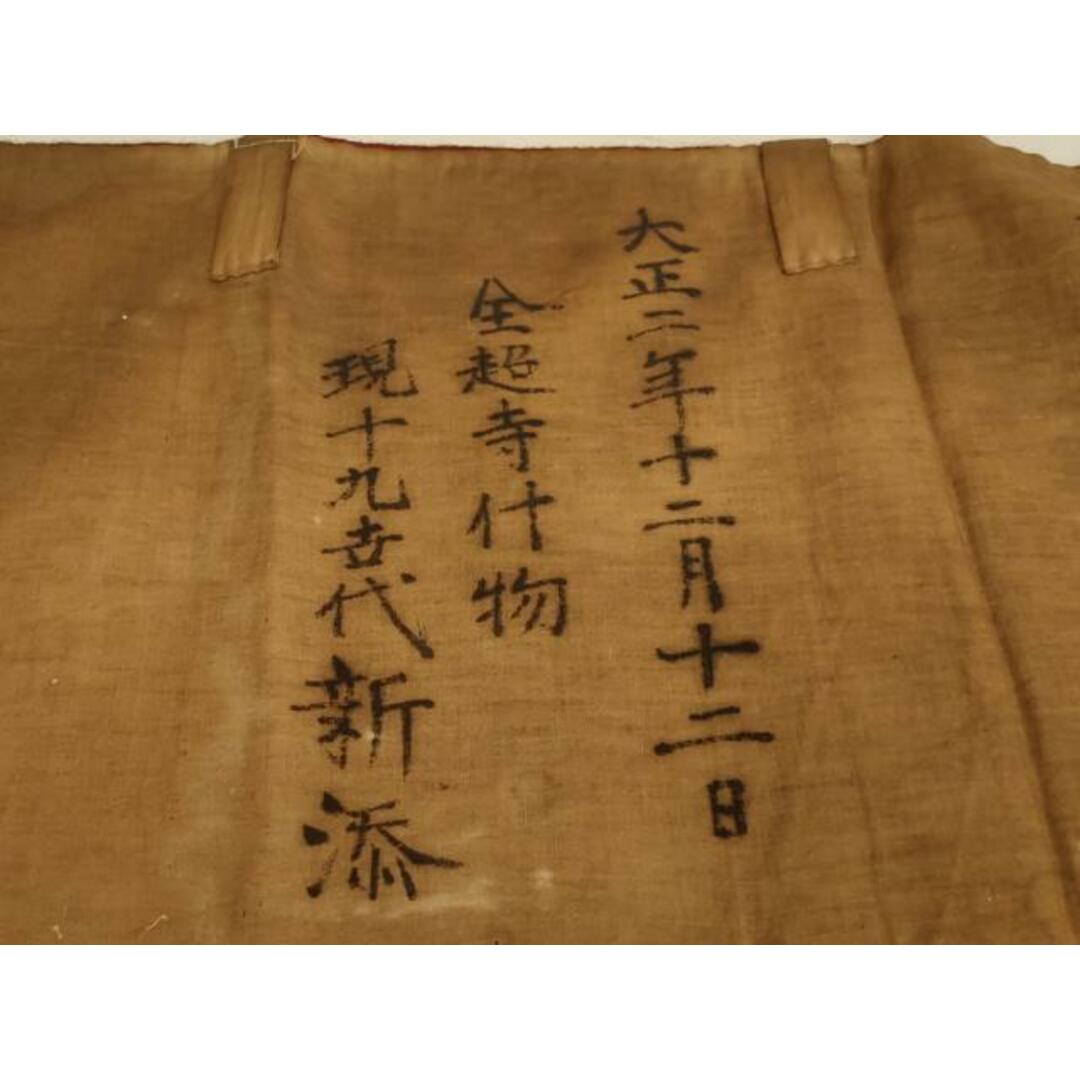 大正二年十二月十二日
全超寺什物
現十九世代新添